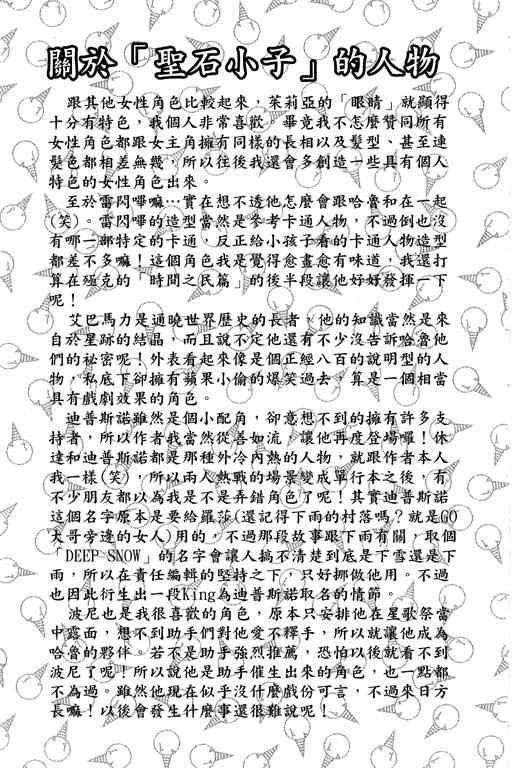 關於「聖石小子」的人物
跟其他女性角色比較起來，茱莉亞的「眼睛」就顯得
十分有特色，我個人非常喜歡。畢竟我不怎麼贊同所有
女性角色都跟女主角擁有同樣的長相以及髮型、甚至連
髮色都相差無幾，所以往後我還會多創造一些具有個人
特色的女性角色出來。
至於雷閃嗶嘛…實在想不透他怎麼會跟哈魯和在一起
(笑)。雷閃嗶的造型當然是參考卡通人物，不過倒也沒
有哪一部特定的卡通，反正給小孩子看的卡通人物造型
都差不多嘛！這個角色我是覺得愈畫愈有味道，我還打
算在殛克的「時間之民篇」的後半段讓他好好發揮一下
呢！
艾巴馬力是通曉世界歷史的長者，他的知識當然是來
自於星跡的結晶，而且說不定他還有不少沒告訴哈魯他
們的祕密呢！外表看起來像是個正經八百的說明型的人
物，私底下卻擁有蘋果小偷的爆笑過去，算是一個相當
具有戲劇效果的角色。
迪普斯諾雖然是個小配角，卻意想不到的擁有許多支
持者，所以作者我當然從善如流，讓他再度登場囉！休
達和迪普斯諾都是那種外冷內熱的人物，就跟作者本人
我一樣(笑)，所以兩人熱戰的場景變成單行本之後，有
不少朋友都以為我是不是弄錯角色了呢！其實迪普斯諾
這個名字原本是要給羅莎(還記得下雨的村落嗎？就是GO
大哥旁邊的女人)用的，不過那段故事跟下雨有關，取個
「DEEP SNOW」的名字會讓人搞不清楚到底是下雪還是下
雨，所以在責任編輯的堅持之下，只好挪做他用。不過
也因此衍生出一段King為迪普斯諾取名的情節。
波尼也是我很喜歡的角色，原本只安排他在星歌祭當
中露面，想不到助手們對他愛不釋手，所以就讓他成為
哈魯的夥伴。若不是助手強烈推薦，恐怕以後就看不到
波尼了呢！所以說他是助手催生出來的角色，也一點都
不為過。雖然他現在似乎沒什麼戲份可言，不過來日方
長嘛！以後會發生什麼事還很難說呢！